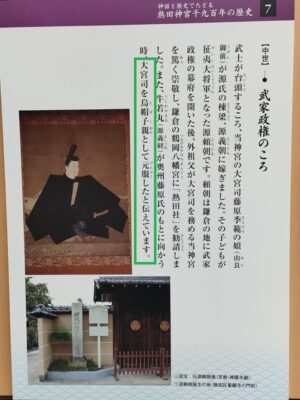 神話と歴史でたどる
熱田神宮千九百年の歴史
7
【中世】 武家政権のころ
武士が台頭するころ、当神宮の大宮司藤原季範の娘(由良
御前)が源氏の棟梁、源義朝に嫁ぎました。その子どもが
征夷大将軍となった源頼朝です。頼朝は鎌倉の地に武家
政権の幕府を開いた後、外祖父が大宮司を務める当神宮
を篤く崇敬し、鎌倉の鶴岡八幡宮に「熱田社」を勧請しま
した。また、牛若丸(源義経)が奥州藤原氏のもとに向かう
時、大宮司を烏帽子親として元服したと伝えています。
①国宝 伝源頼朝像(京都・神護寺蔵)
②源頼朝誕生の地(熱田区誓願寺の門前)